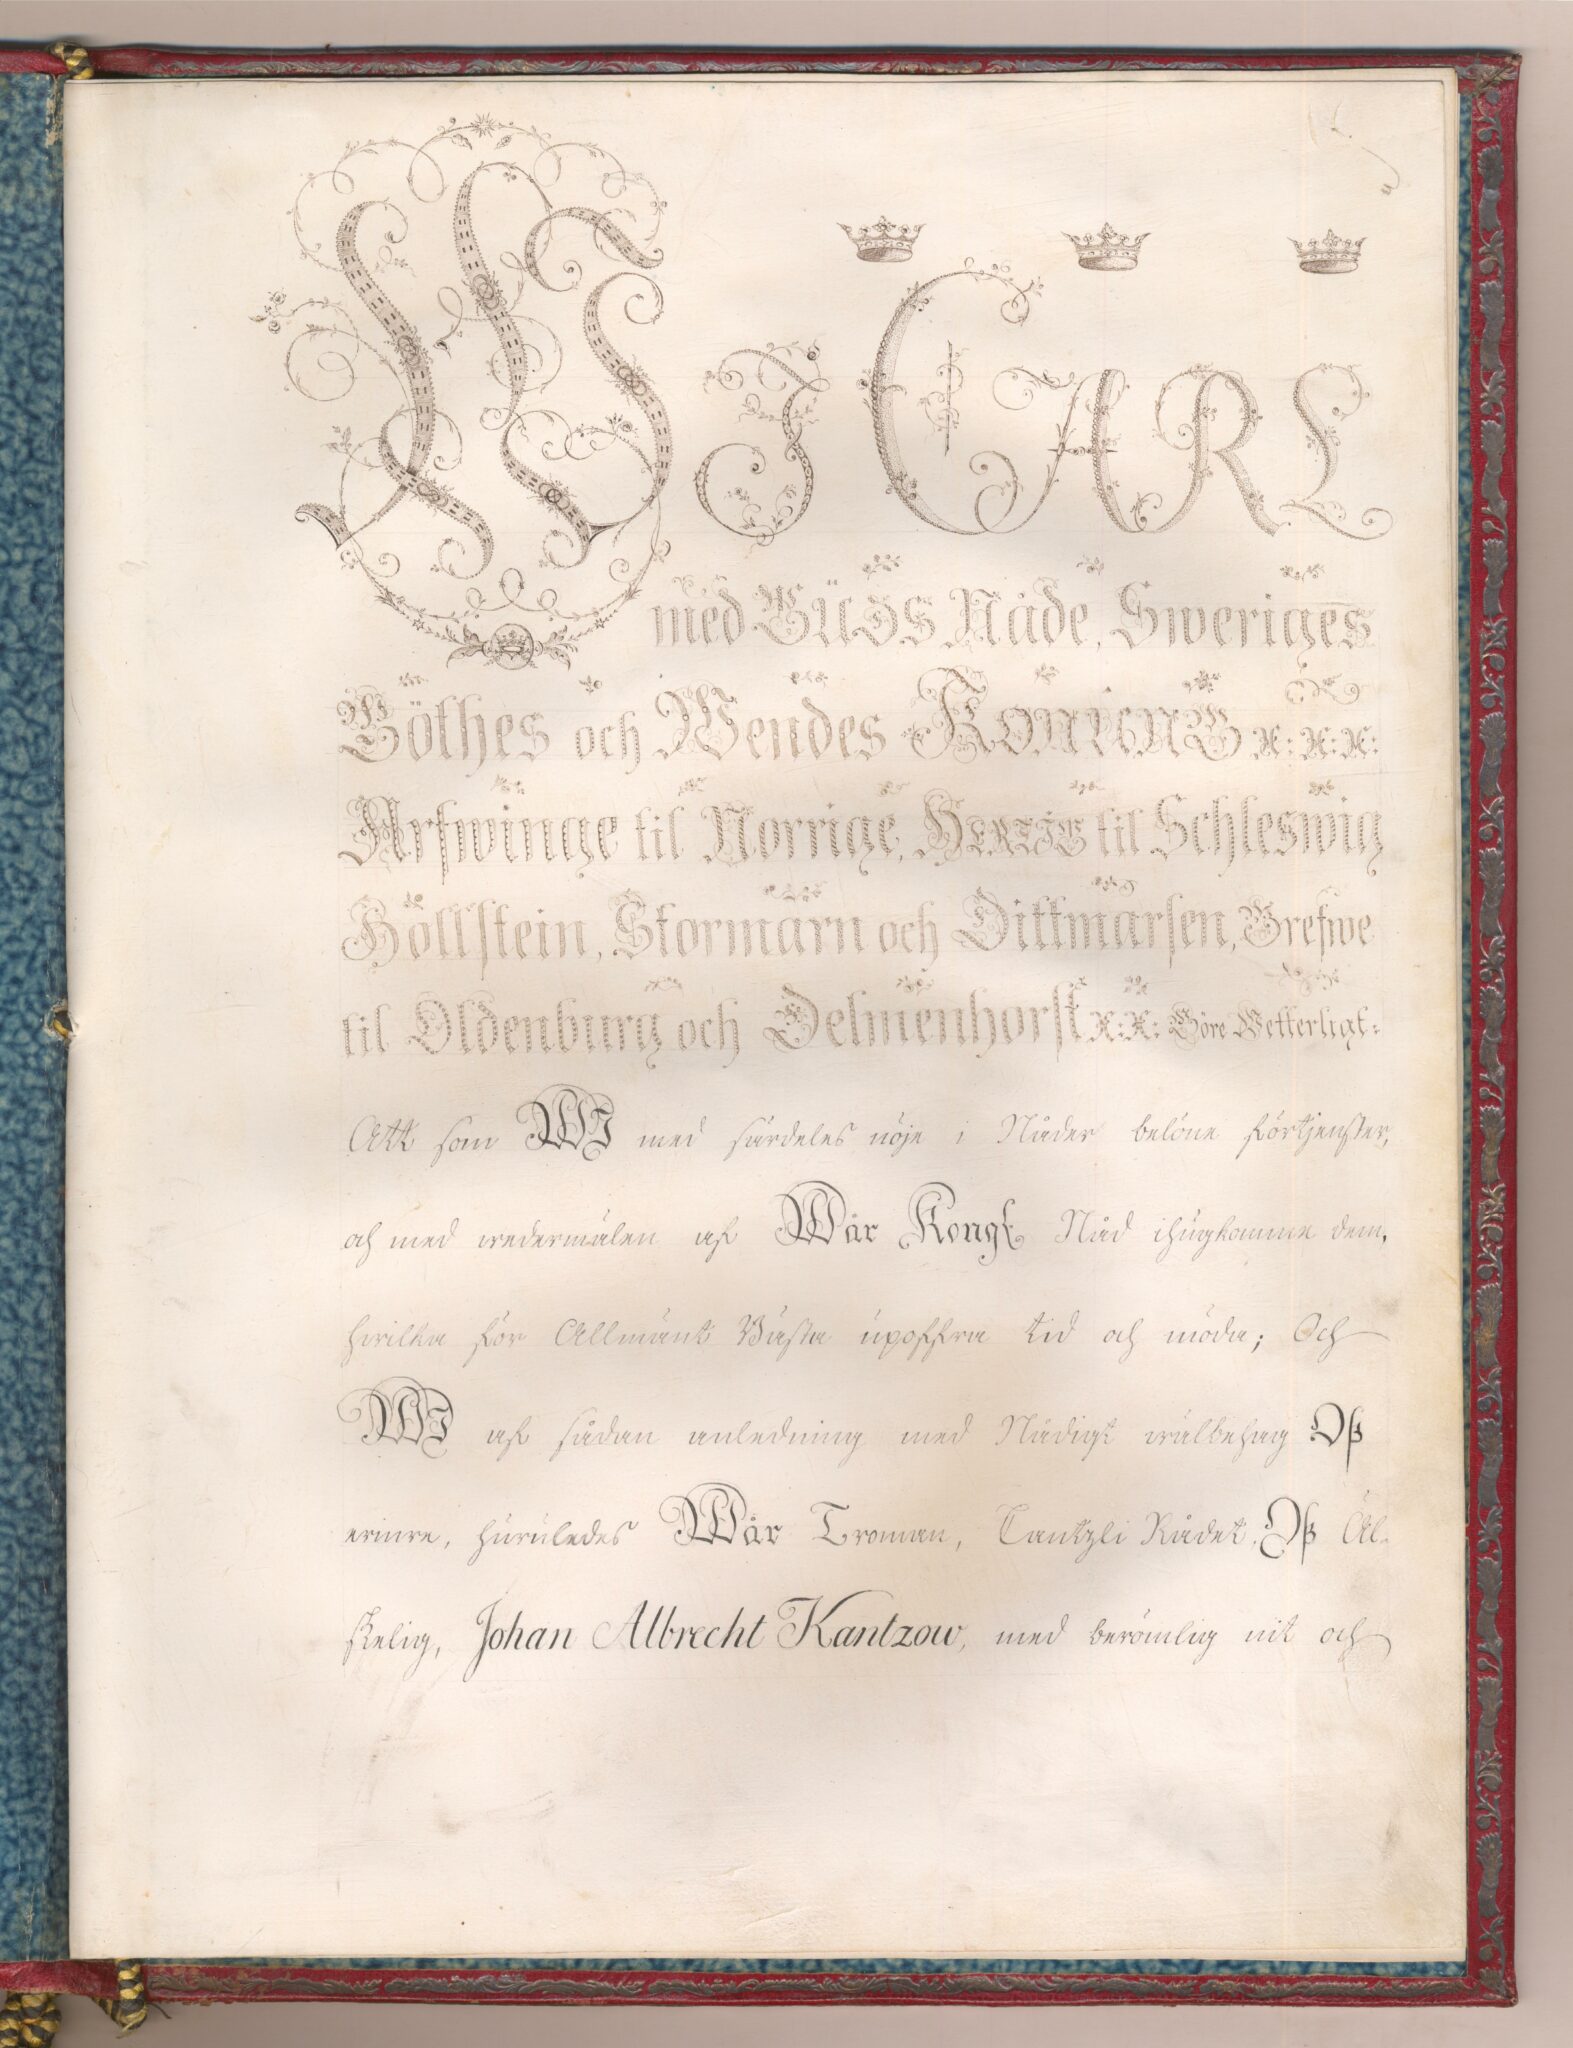 WJ CARL
med GUDS Nåde, Sweriges
Göthes och Wendes KONUNG x:x:x:
Arfwinge til Norrige, HERTIG til Schleswig
Hollstein, Stormarn och Dittmarsen, Grefwe
til Oldenburg och Delmenhorst x:x: Göre Wetterligt:
Att som WJ med särdeles nöje i Nåder belöne förtjenster,
och med wedermälen af Wår Kongl Nåd ihugkomme dem,
hwilka för Allmänt Bästa upoffra tid och möda; Och
WJ af sådan anledning med Nådigt wälbehag Oß
erinre, huruledes Wår Troman, Cantzli Rådet, Oß Äl-
skelig, Johan Albrecht Kantzow, med berömlig nit och